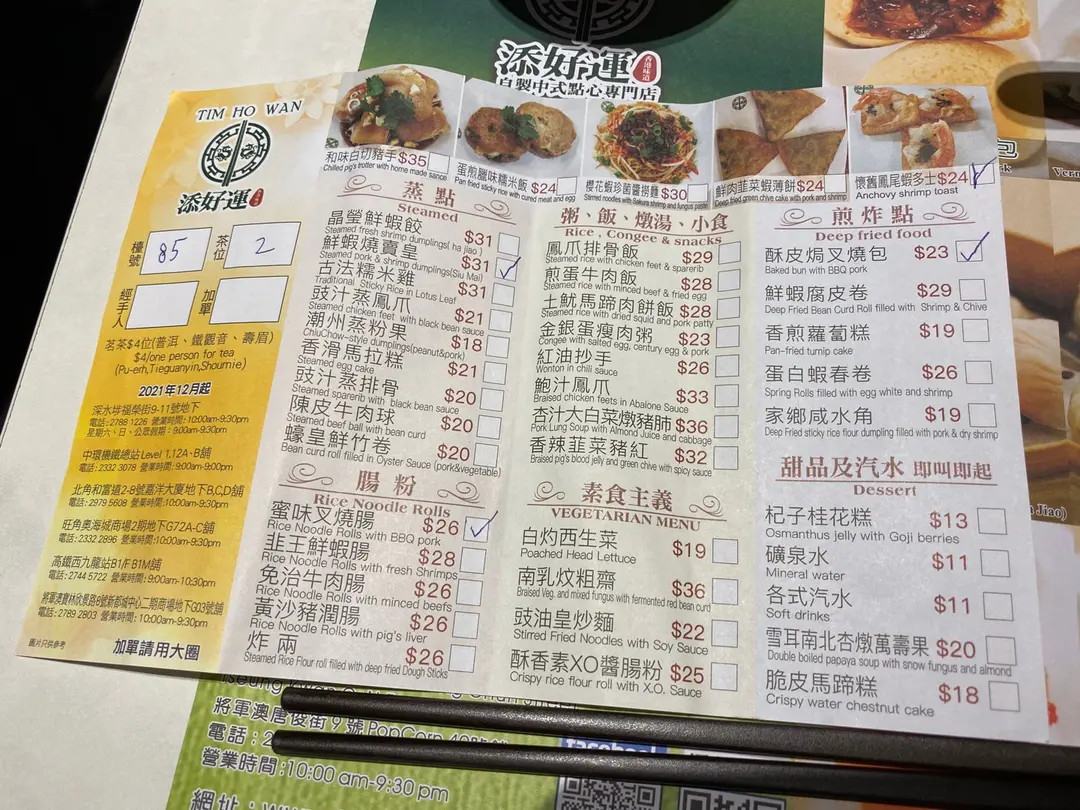 添好運
香港味道
自製中式點心專門店
TIM HO WAN
添好運
檯號 85 茶位 2
經手人 加單
茗茶$4位(普洱、鐵觀音、壽眉)
$4/one person for tea
(Pu-erh,Tieguanyin,Shoumie)
2021年12月起
深水埗福榮街9-11號地下
電話:2788 1226 營業時間:10:00am-9:30pm
星期六、日、公眾假期:9:00am-9:30pm
中環機鐵總站Level 1,12A、B舖
電話:2332 3078 營業時間:9:00am-9:00pm
北角和富道2-8號嘉洋大廈地下B,C,D舖
電話:2979 5608 營業時間:10:00am-9:30pm
旺角奧海城商場2期地下G72A-C舖
電話:2332 2896 營業時間:10:00am-9:30pm
高鐵西九龍站B1/F B1M舖
電話:2744 5722 營業時間:9:00am-10:30pm
將軍澳寶林欣景路8號新都城中心二期商場地下G03號舖
電話:2789 2803 營業時間:10:00am-9:30pm
圖片只供參考
加單請用大圈
和味白切豬手 $35
Chilled pig's trotter with home made sauce
蛋煎臘味糯米飯 $24
Pan fried sticky rice with cured meat and egg
櫻花蝦珍菌醬撈麵 $30
Stirred noodles with Sakura shrimp and fungus paste
鮮肉韮菜蝦薄餅 $24
Deep fried green chive cake with pork and shrimp
懷舊鳳尾蝦多士 $24 ✓
Anchovy shrimp toast
蒸點
Steamed
晶瑩鮮蝦餃 $31
Steamed fresh shrimp dumplings( ha jiao )
鮮蝦燒賣皇 $31 ✓
Steamed pork & shrimp dumplings(Siu Mai)
古法糯米雞 $31
Traditional Sticky Rice in Lotus Leaf
豉汁蒸鳳爪 $21
Steamed chicken feet with black bean sauce
潮州蒸粉果 $18
ChiuChow-style dumplings(peanut&pork)
香滑馬拉糕 $21
Steamed egg cake
豉汁蒸排骨 $20
Steamed sparerib with black bean sauce
陳皮牛肉球 $20
Steamed beef ball with bean curd
蠔皇鮮竹卷 $20
Bean curd roll filled in Oyster Sauce (pork&vegetable)
腸粉
Rice Noodle Rolls
蜜味叉燒腸 $26 ✓
Rice Noodle Rolls with BBQ pork
韭王鮮蝦腸 $28
Rice Noodle Rolls with fresh Shrimps
免治牛肉腸 $26
Rice Noodle Rolls with minced beefs
黃沙豬潤腸 $26
Rice Noodle Rolls with pig's liver
炸兩 $26
Steamed Rice Flour roll filled with deep fried Dough Sticks
粥、飯、燉湯、小食
Rice , Congee & snacks
鳳爪排骨飯 $29
Steamed rice with chicken feet & sparerib
煎蛋牛肉飯 $28
Steamed rice with minced beef & fried egg
土魷馬蹄肉餅飯 $28
Steamed rice with dried squid and pork patty
金銀蛋瘦肉粥 $23
Congee with salted egg, century egg & pork
紅油抄手 $26
Wonton in chili sauce
鮑汁鳳爪 $33
Braised chicken feets in Abalone Sauce
杏汁大白菜燉豬肺 $36
Pork Lung Soup with Almond Juice and cabbage
香辣韮菜豬紅 $32
Braised pig's blood jelly and green chive with spicy sauce
素食主義
VEGETARIAN MENU
白灼西生菜 $19
Poached Head Lettuce
南乳炆粗齋 $36
Braised Veg. and mixed fungus with fermented red bean curd
豉油皇炒麵 $22
Stirred Fried Noodles with Soy Sauce
酥香素XO醬腸粉 $25
Crispy rice flour roll with X.O. Sauce
煎炸點
Deep fried food
酥皮焗叉燒包 $23 ✓
Baked bun with BBQ pork
鮮蝦腐皮卷 $29
Deep Fried Bean Curd Roll filled with Shrimp & Chive
香煎蘿蔔糕 $19
Pan-fried turnip cake
蛋白蝦春卷 $26
Spring Rolls filled with egg white and shrimp
家鄉咸水角 $19
Deep Fried sticky rice flour dumpling filled with pork & dry shrimp
甜品及汽水 即叫即起
Dessert
杞子桂花糕 $13
Osmanthus jelly with Goji berries
礦泉水 $11
Mineral water
各式汽水 $11
Soft drinks
雪耳南北杏燉萬壽果 $20
Double boiled papaya soup with snow fungus and almond
脆皮馬蹄糕 $18
Crispy water chestnut cake
包
Jiao)
將軍澳唐俊街9號PopCorn
電話:2
營業時間:10:00 am-9:30 pm
網址:
facebook